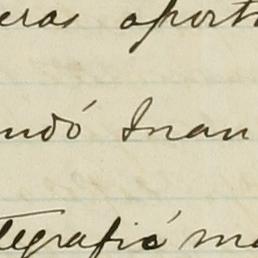 eras aport
ndó Inan
tegrafié ma